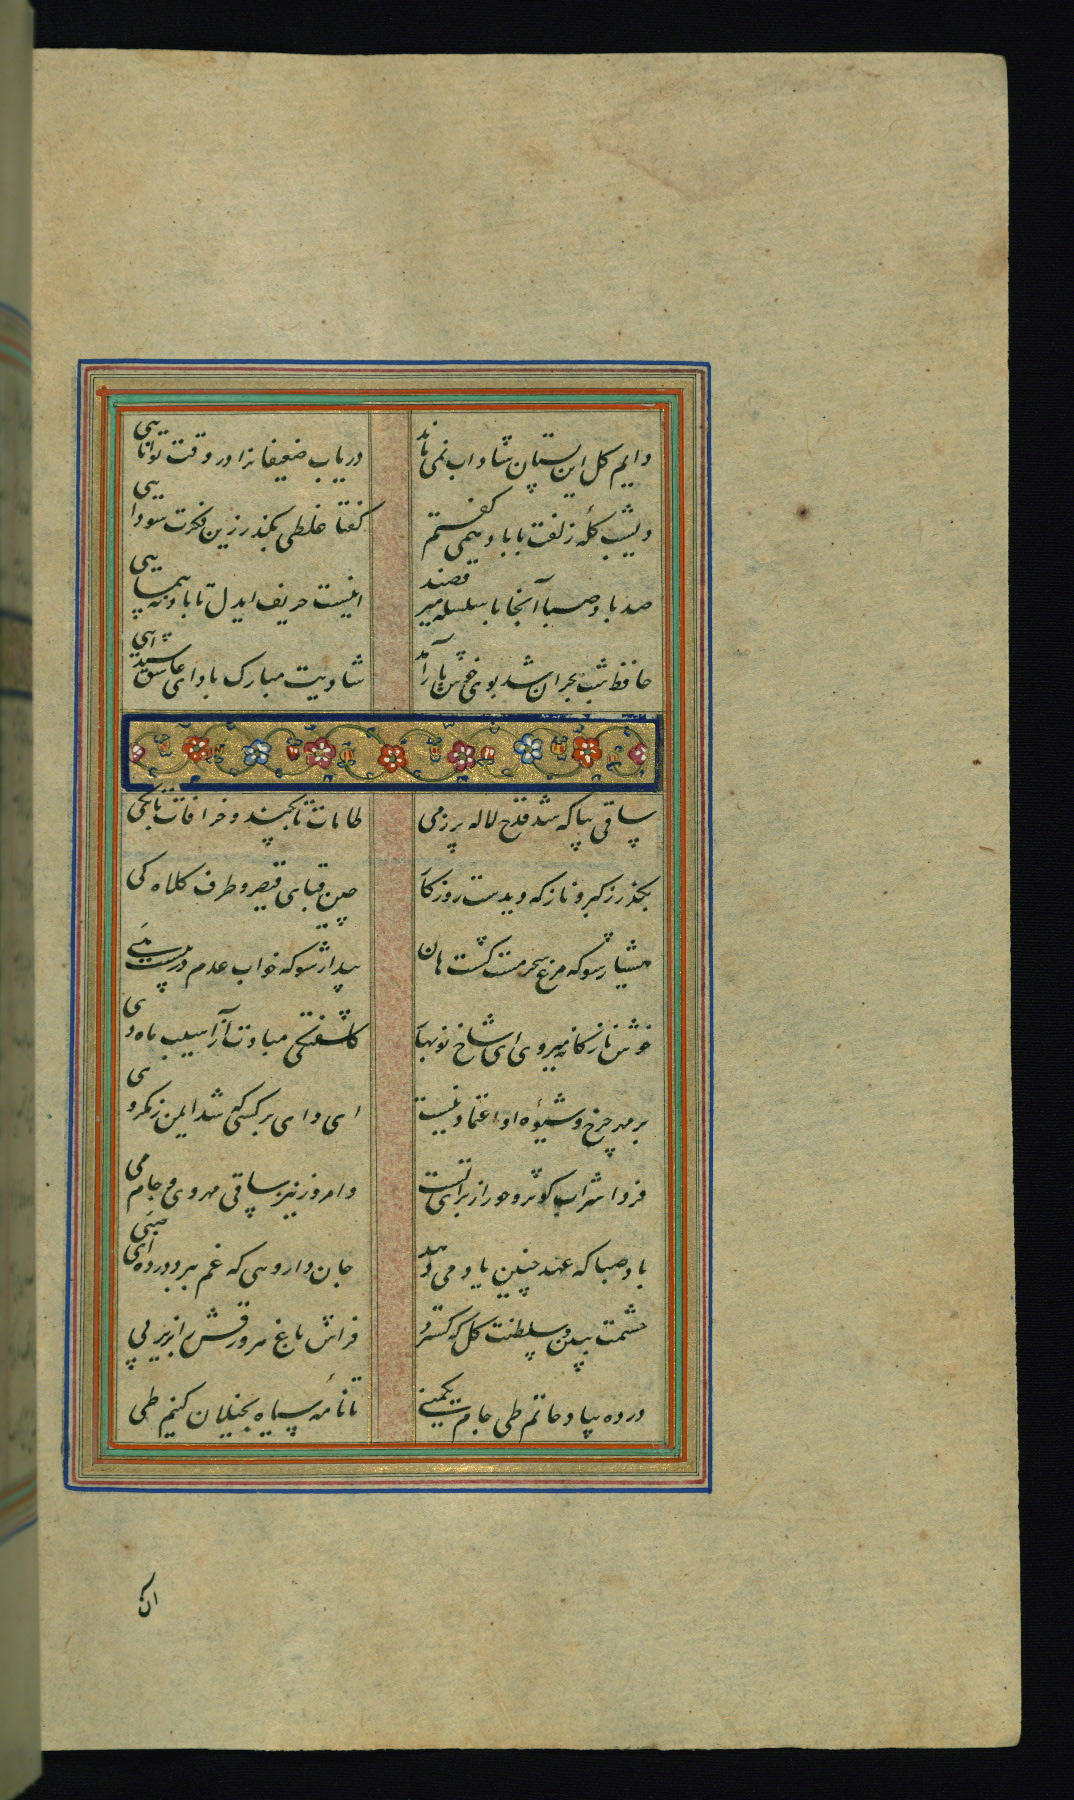 دایم گل این بستان شاداب نمی ماند
دریاب ضعیفانرا در وقت توانایی
دیشب گلۀ زلفت با باد همی گفتم
گفتا غلطی بگذر زین فکرت سودایی
صد باد صبا آنجا با سلسله میرقصند
اینست حریف ایدل تا باد نپیمایی
حافظ شب هجران شد بوی خوش یار آمد
شادیت مبارک باد ای عاشق شیدایی
ساقی بیا که شد قدح لاله پر ز می
طامات تا بچند و خرافات تا بکی
بگذر ز کبر و ناز که دیدست روزکار
چین قبای قیصر و طرف کلاه کی
هشیار شو که مرغ سحر مست گشت هان
بیدار شو که خواب عدم در پیست هی
خوش نازکانه میروی ای شاخ نوبهار
کاشفتکی مبادت از آسیب باد دی
بر مهر چرخ و شیوۀ او اعتماد نیست
ای وای بر کسی که شد ایمن ز مکر وی
فردا شراب کوثر و حور از برای تست
و امروز نیز ساقی مهروی و جام می
باد صبا ز عهد صبی یاد می دهد
جان داروهی که غم ببرد درده ای صبی
حشمت مبین و سلطنت گل که گسترد
فراش باغ هر ورقش را بزیر پی
درده بیاد حاتم طی جام یکمنی
تا نامۀ سیاه بخیلان کنیم طی
ان